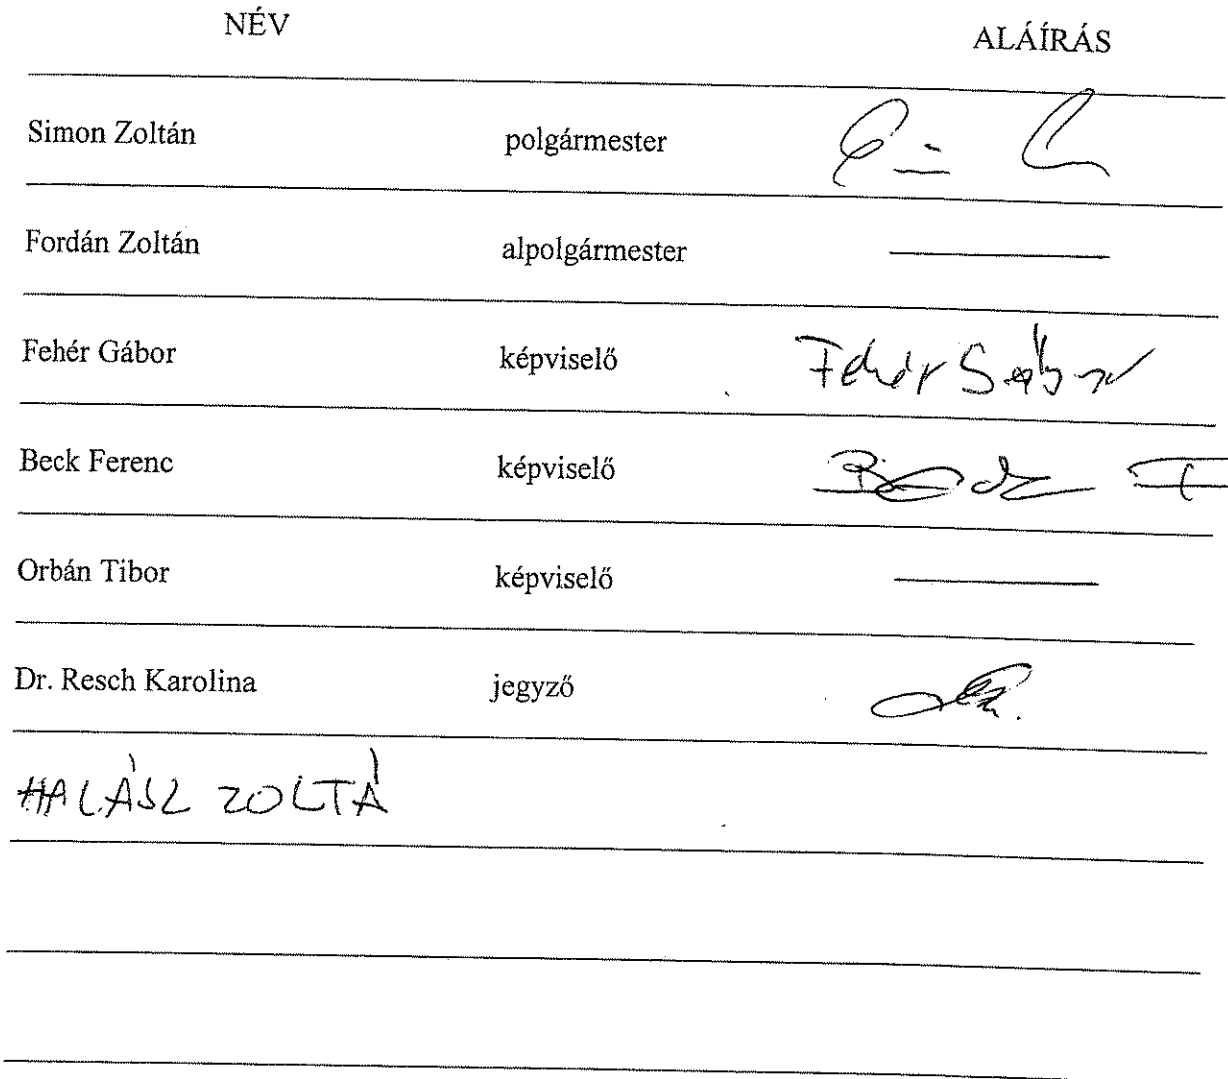 NÉV ALÁÍRÁS
Simon Zoltán polgármester
Fordán Zoltán alpolgármester
Fehér Gábor képviselő Fehér Gábor
Beck Ferenc képviselő Beck F
Orbán Tibor képviselő
Dr. Resch Karolina jegyző
HALÁSZ ZOLTÁ